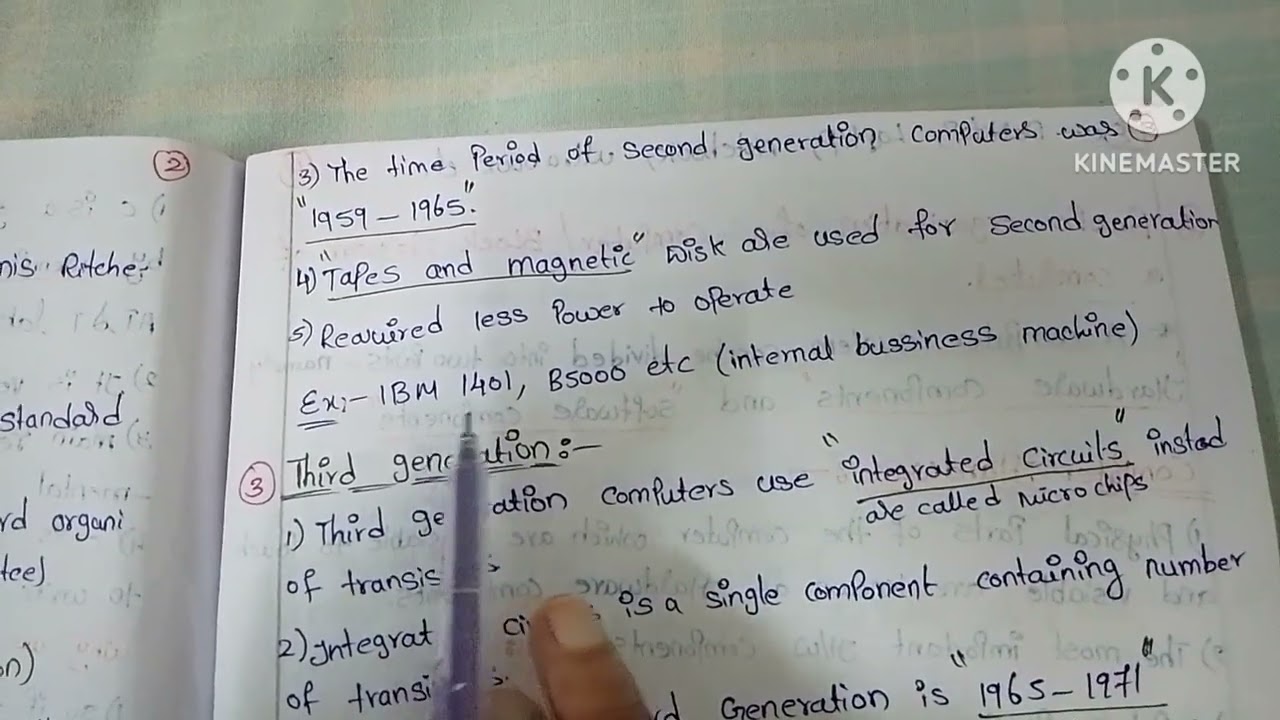 2
nis Ritche
standard
rd organi
tee)
on)
3) The time Period of second generation computers was
"1959 – 1965".
4) "Tapes and magnetic" Disk are used for second generation
5) Required less power to operate
Ex:- IBM 1401, B5000 etc (internal bussiness machine)
3 Third generation:-
1) Third ge ation computers use "integrated circuits" insted
are called microchips
of transis s
2) Integrat ci is a single component containing number
of transi s.
d Generation is "1965 – 1971"
K
KINEMASTER